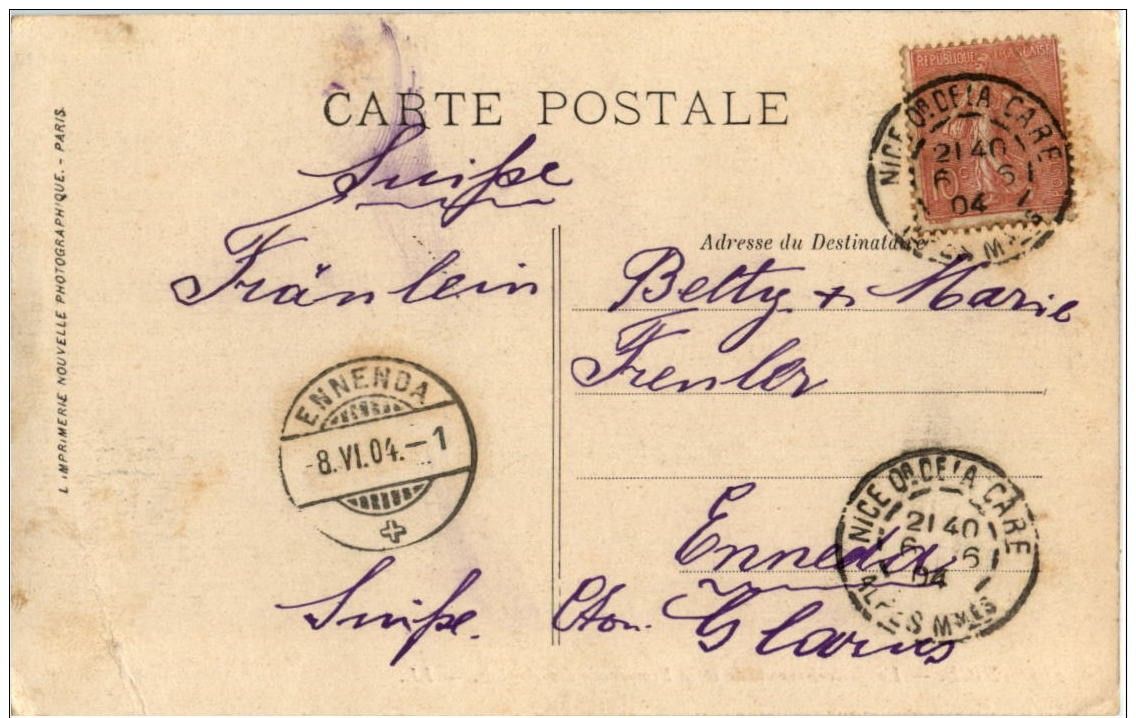 CARTE POSTALE
REPUBLIQUE FRANÇAISE
NICE QR DE LA GARE
21 40
6 6
04
Suisse
Adresse du Destinataire
Fräulein
Betty & Marie
Frenler
ENNENDA
-8.VI.04.-1
NICE QR DE LA GARE
21 40
6 6
04
ALPES MMES
Enneda
Suisse. Cton. Glarus
L'IMPRIMERIE NOUVELLE PHOTOGRAPHIQUE. - PARIS